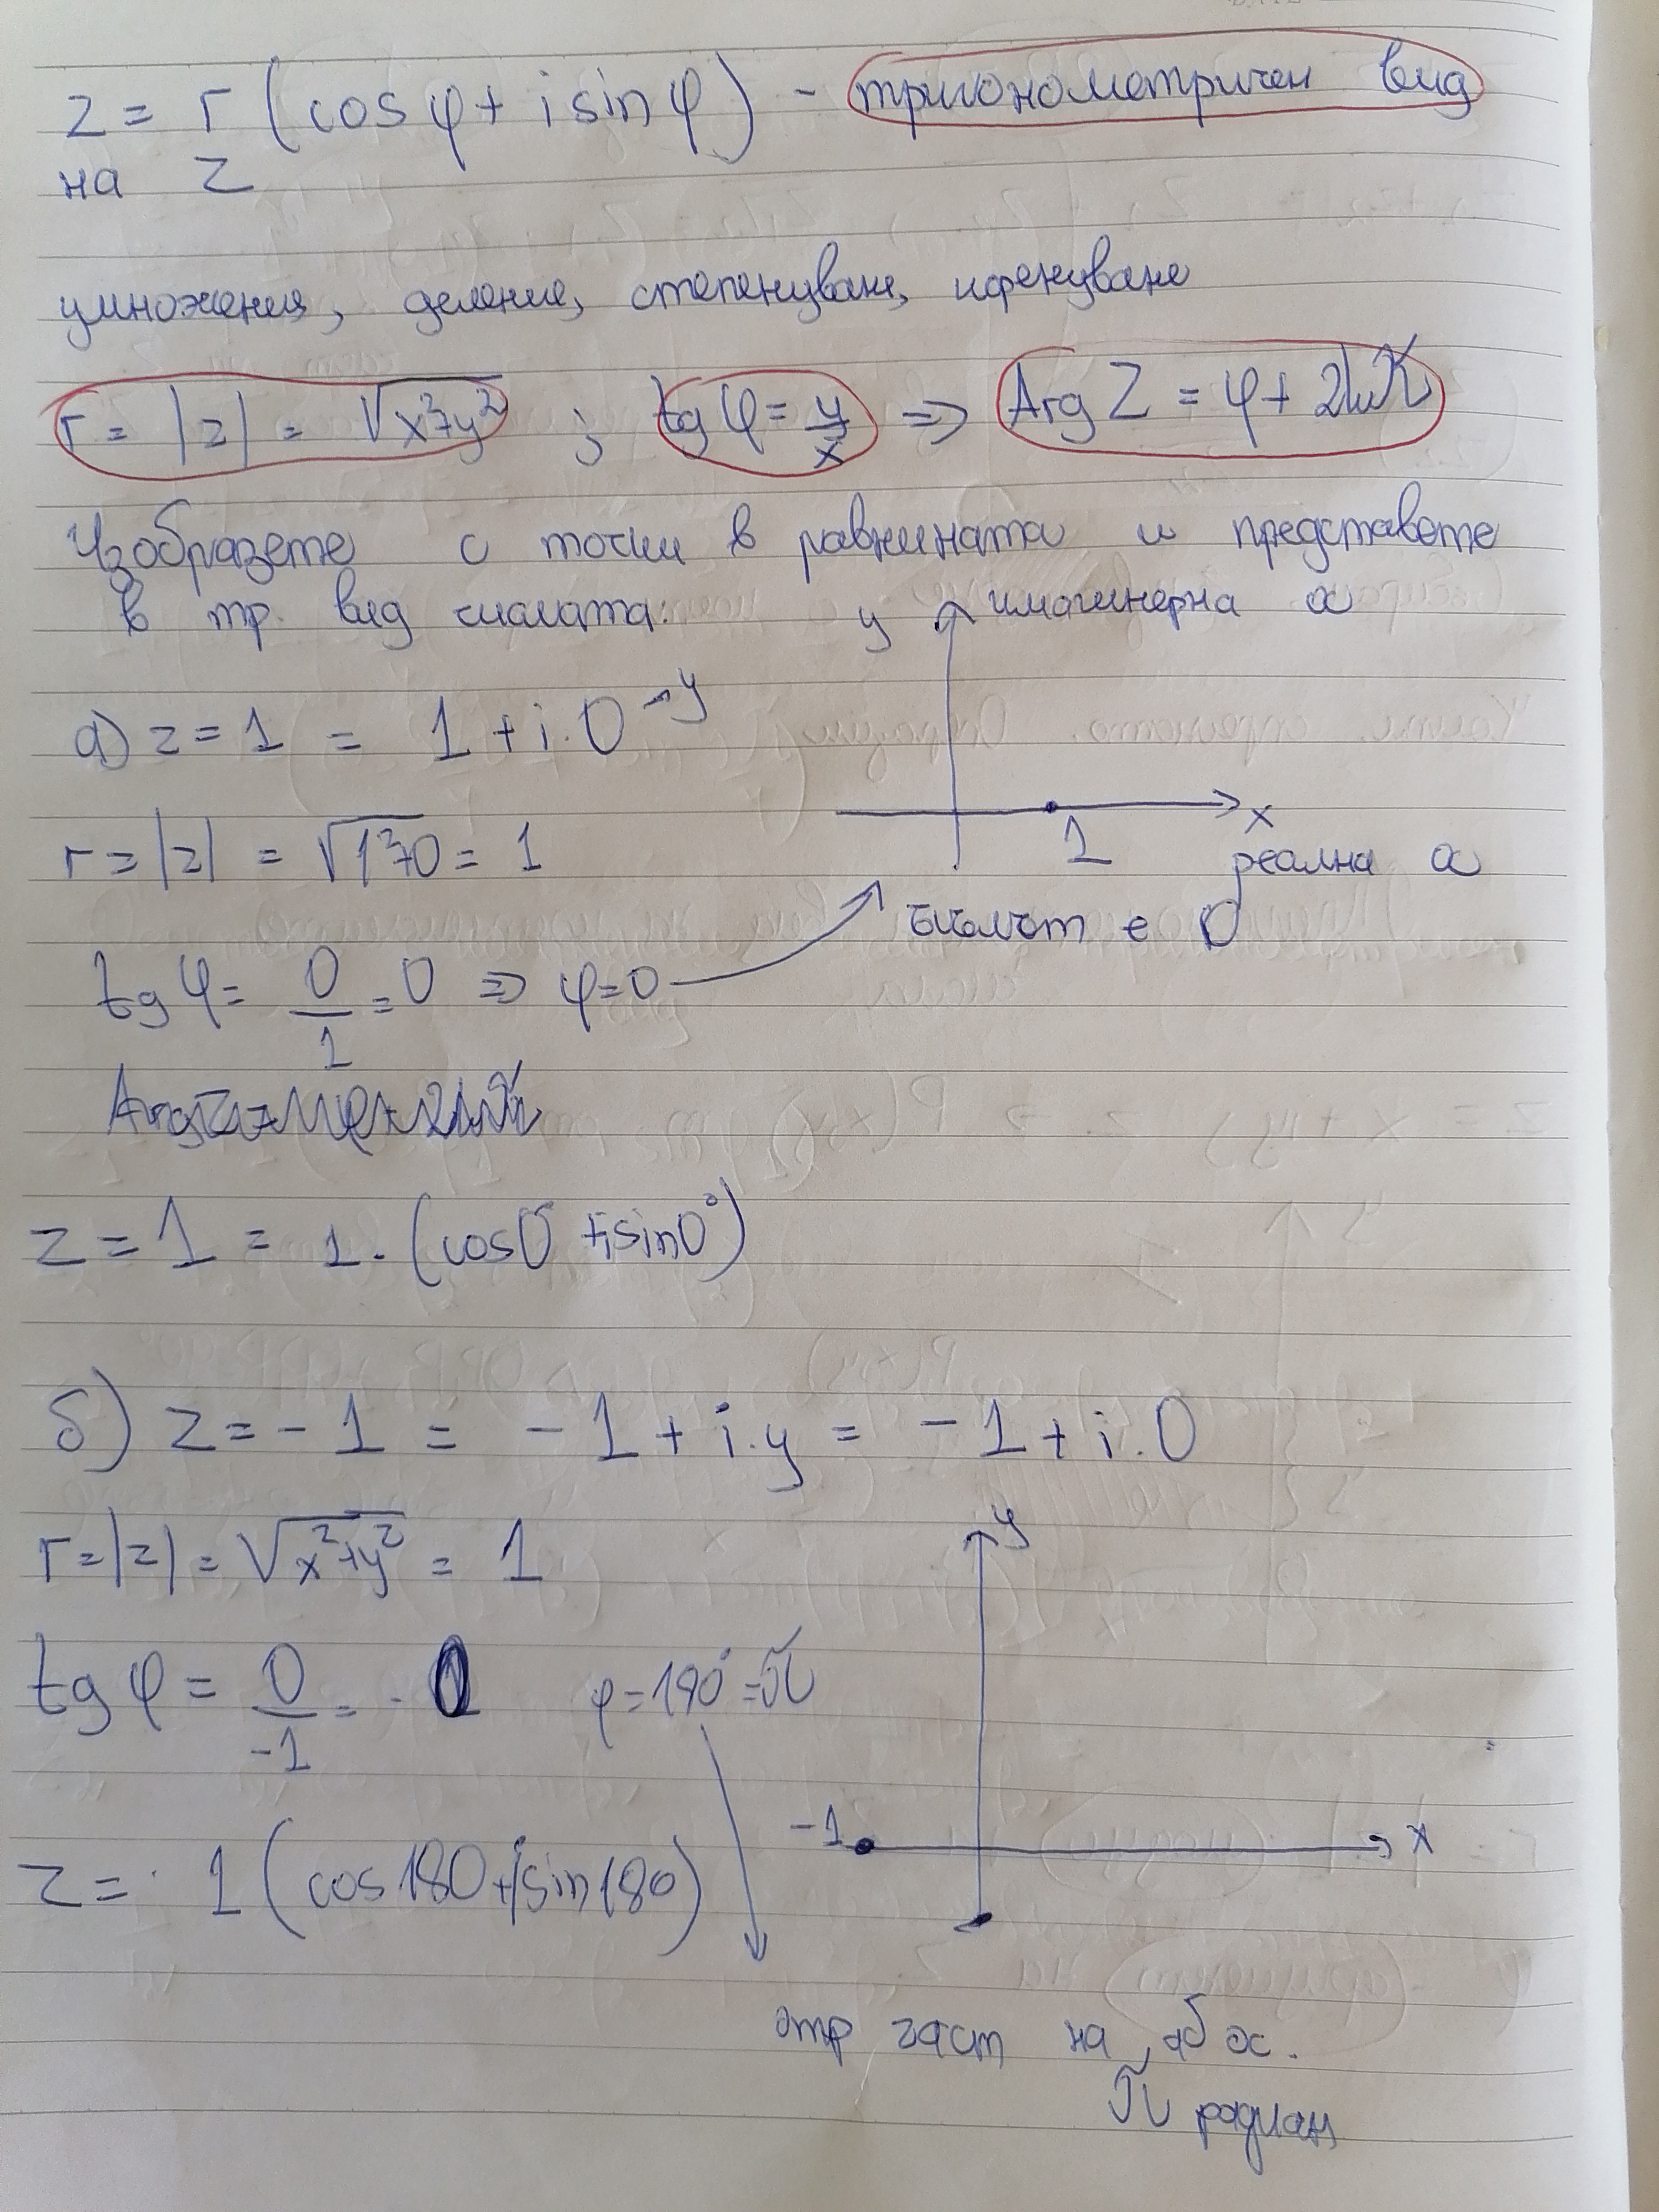 z = r (cos φ + i sin φ) - тригонометричен вид
на z
умножения, деление, степенуване,
r = |z| = √x²+y² ; tg φ = y/x => Arg Z = φ + 2kπ
Изобразете с точки в равнината и представете
в тр. вид числата:
y имагинерна ос
а) z = 1 = 1 + i.0 → y
x
1
реална ос
r = |z| = √1²+0 = 1
ъгълът е 0
tg φ = 0/1 = 0 => φ=0
z = 1 = 1. (cos0° + i sin0°)
б) z = - 1 = - 1 + i.y = - 1 + i.0
r = |z| = √x²+y² = 1
y
tg φ = 0/-1 = - 0 φ = 180° = π
-1 x
z = 1 (cos180 + i sin180)
отр част на абс.
π радиан